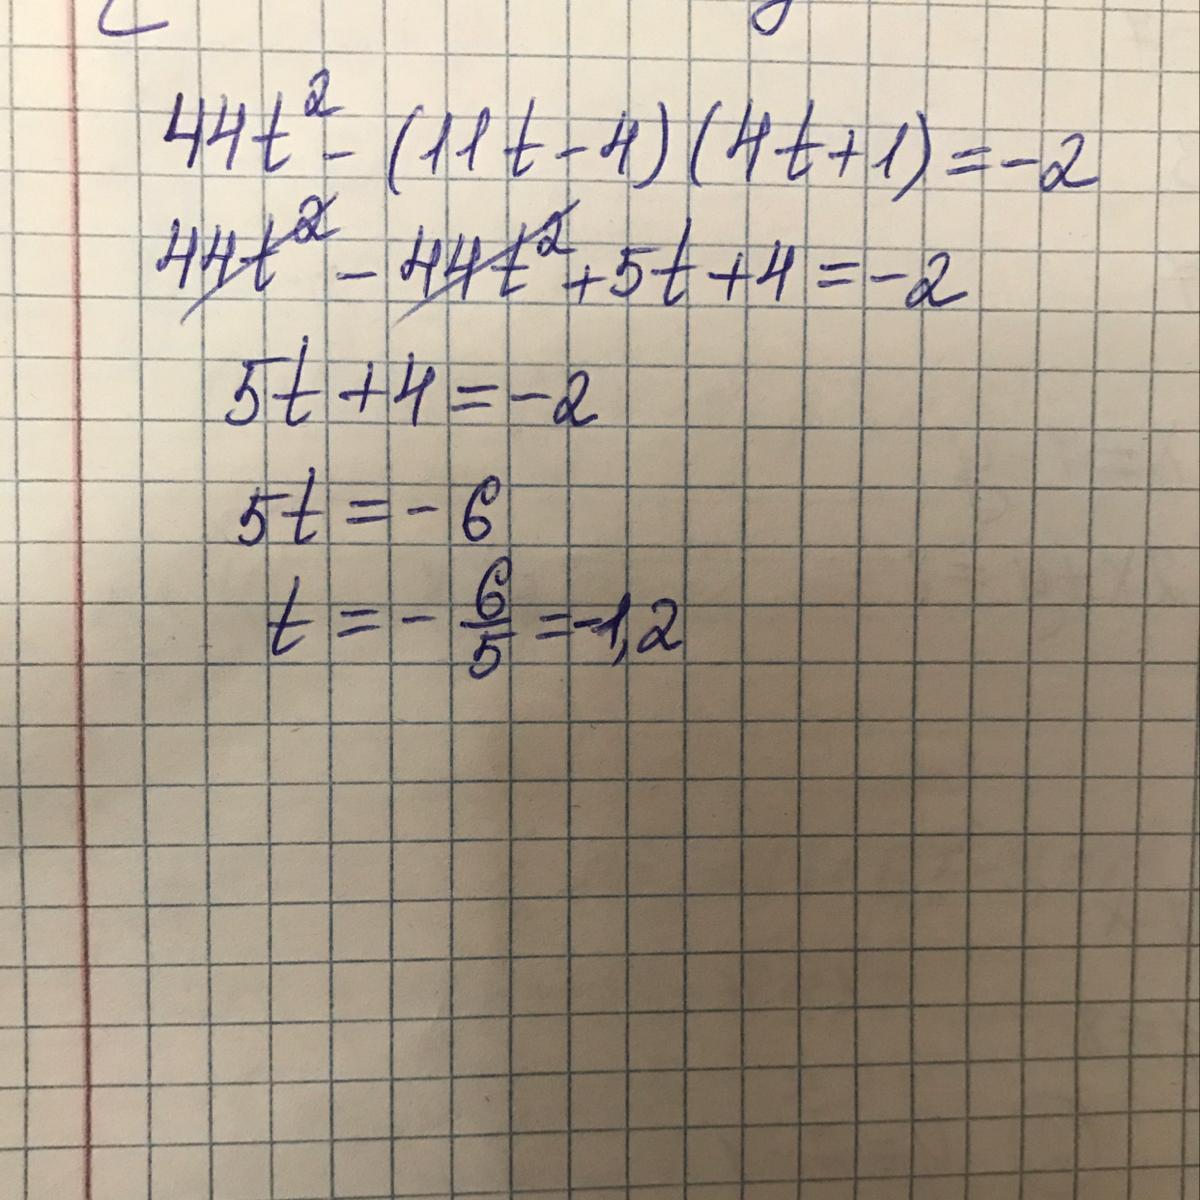 44t² - (11t - 4)(4t + 1) = -2
44t² - 44t² + 5t + 4 = -2
5t + 4 = -2
5t = -6
t = -6/5 = -1,2